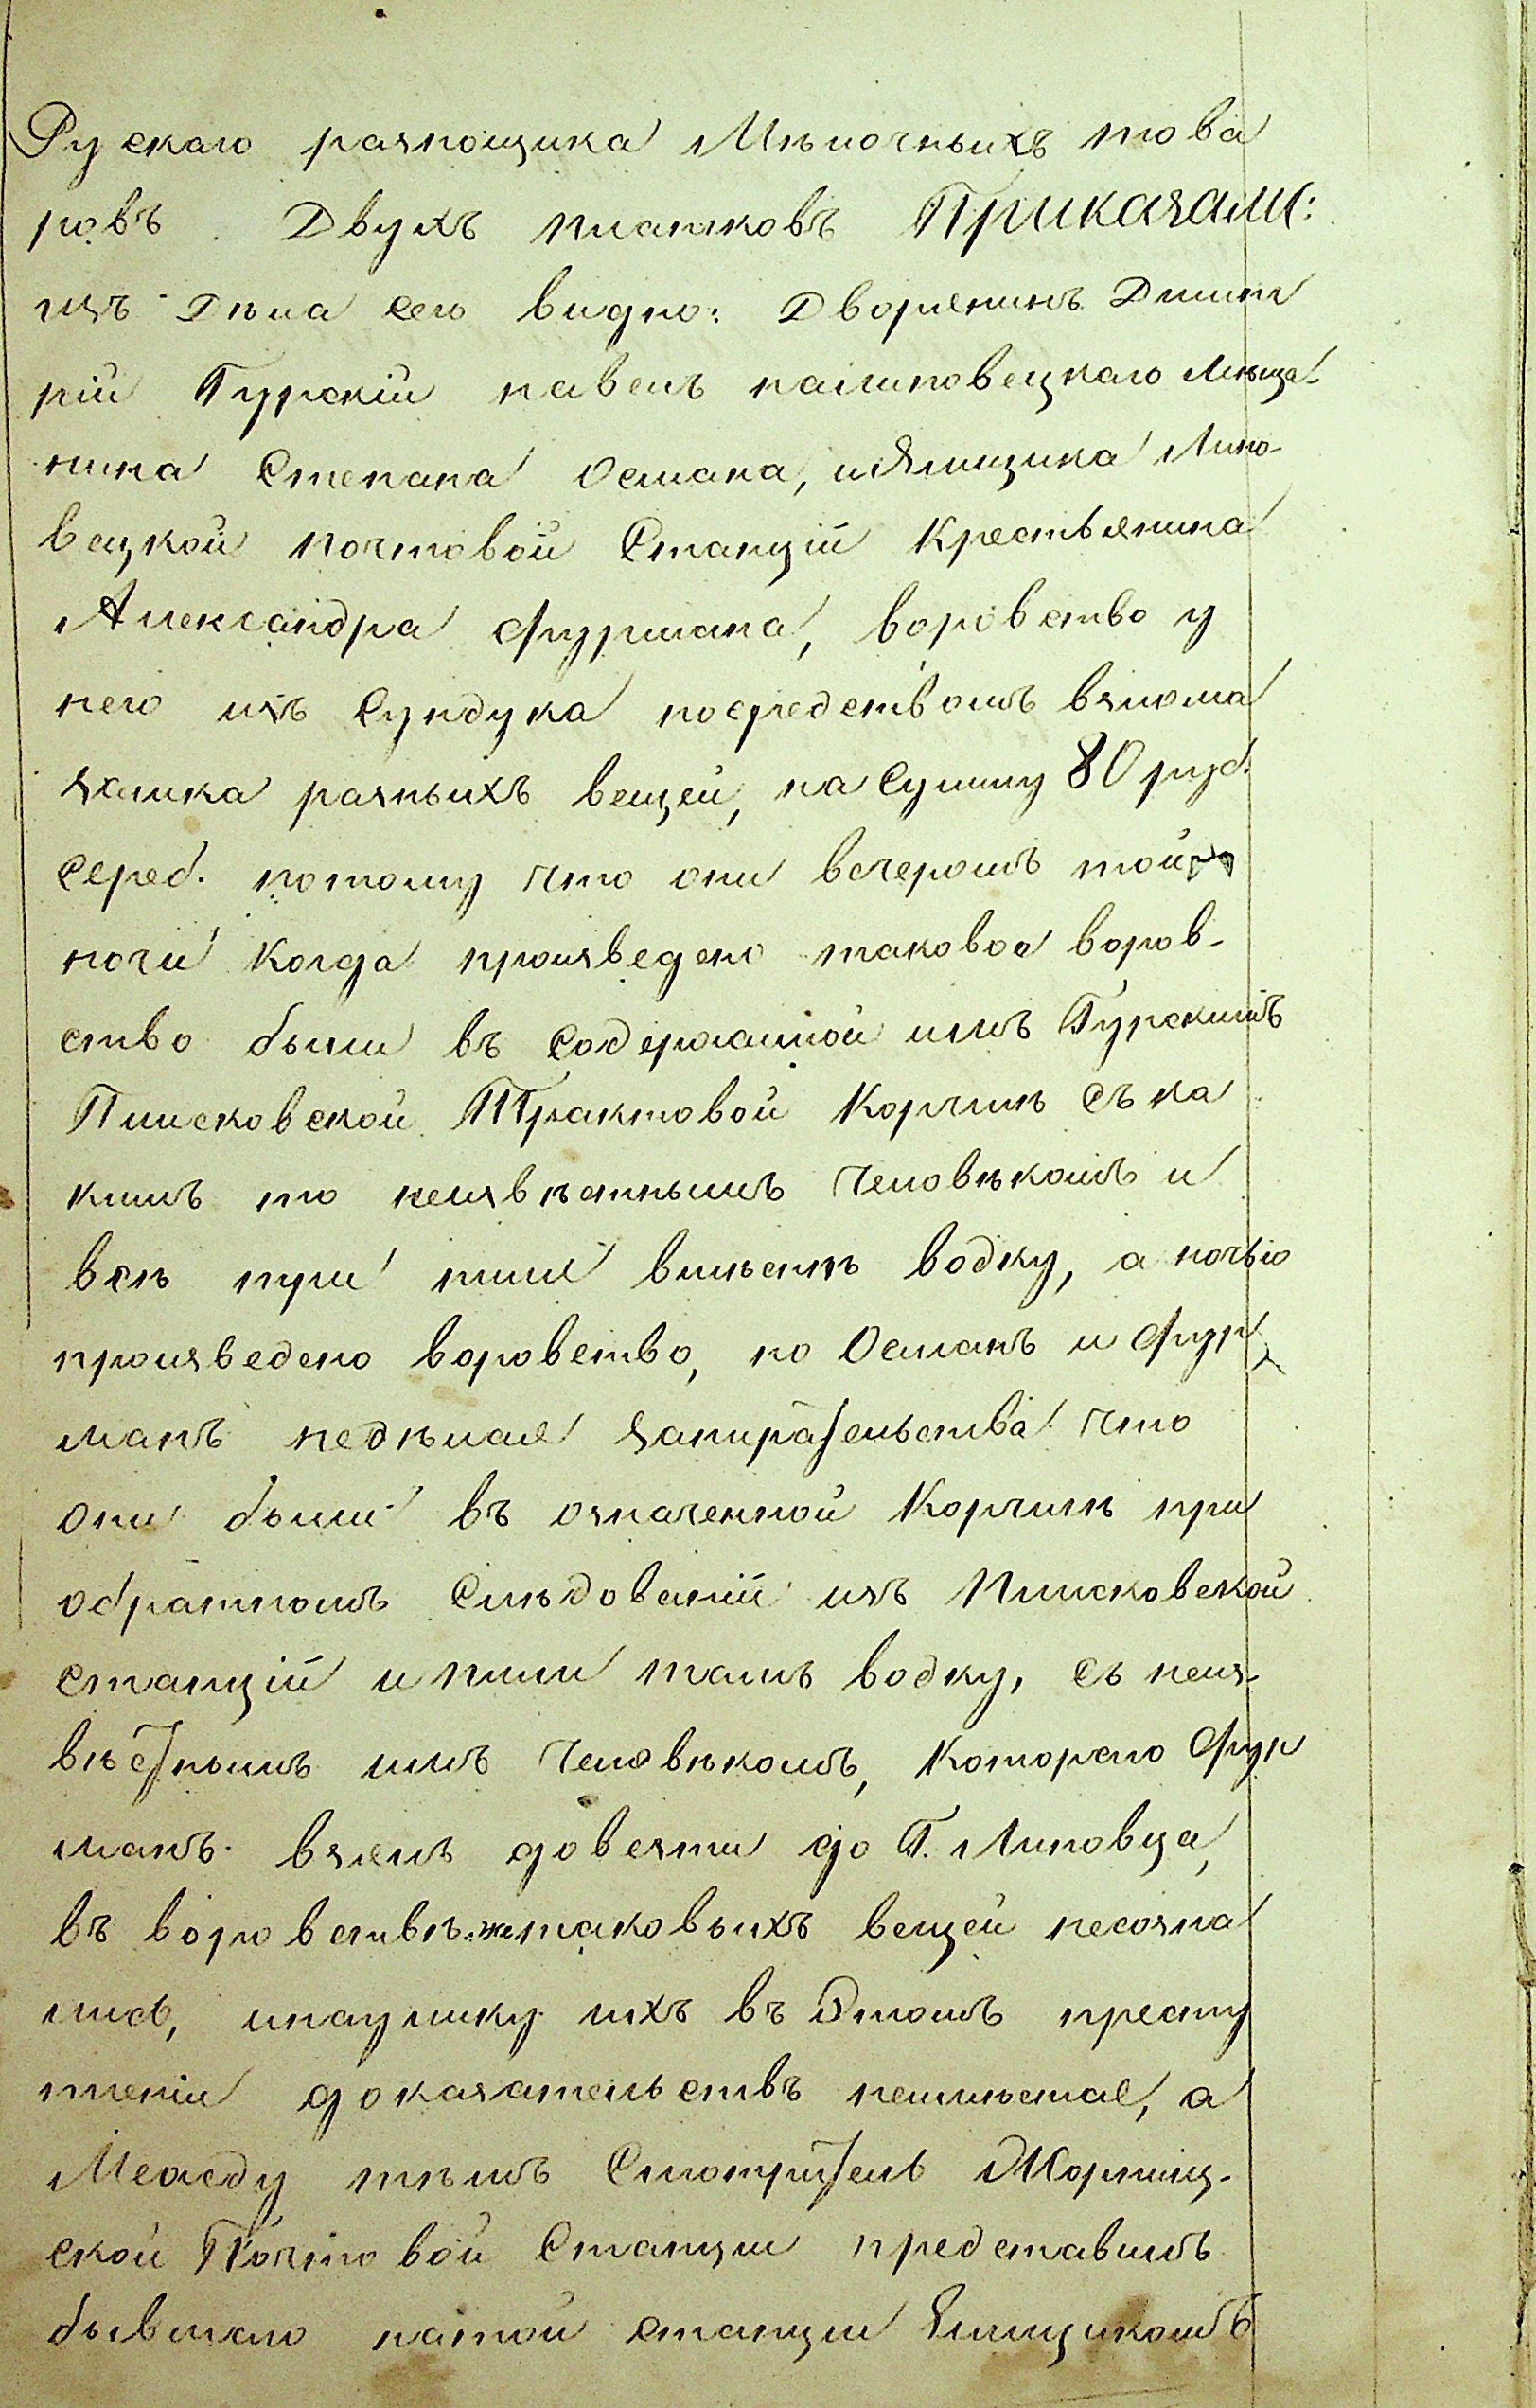 Рускаго разнощика Мѣлочныхъ това
ровъ. Двухъ платковъ Приказали:
изъ Дѣла сего видно: Дворянинъ Дмит
рій Гурскій навелъ налиповецкаго Мѣща-
нина Степана Османа, иЯмщика Липо-
вецкой почтовой Станціи Крестьянина
Александра Фурмана, воровство у
него изъ Сундука посредствомъ взлома
замка разныхъ вещей, на Сумму 80 руб.
Сереб. потому что они вечеромъ той
ночи когда произведено таковое воров-
ство были въ Содержанной имъ Гурскимъ
Плисковской Трактовой Корчмѣ съ ка
кимъ то неизвѣстнымъ Человѣкомъ и
всѣ три пили вмѣстѣ водку, а ночью
произведено воровство, но Османъ и Фур
манъ недѣлая запирательства что
они были въ означенной Корчмѣ при
обратномъ Слѣдованіи изъ Плисковской
станціи и пили тамъ водку, съ неиз-
вѣстнымъ имъ Человѣкомъ, Котораго Фур
манъ взялъ довезти до Г. Липовца,
въ воровствѣ же таковыхъ вещей несозна
лись, инаулику ихъ въ Этомъ престу
пленіи доказательствъ неимѣется, а
Между тѣмъ Смотритель Жорнищ-
ской Почтовой Станціи представилъ
бывшаго натой станціи Ямщикомъ